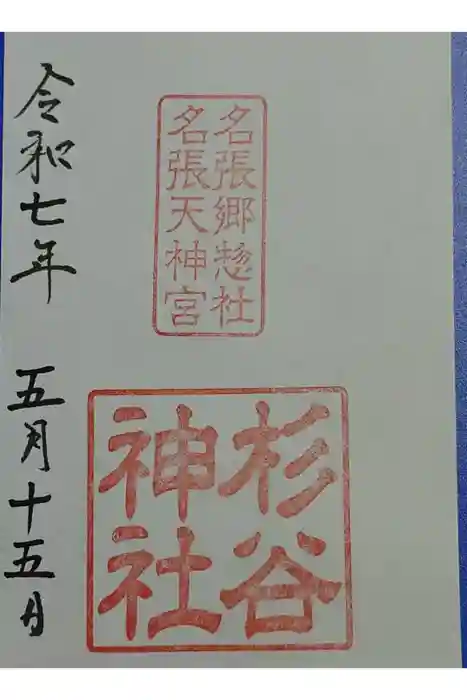 名張郷惣社
名張天神宮
杉谷
神社
令和七年 五月十五日